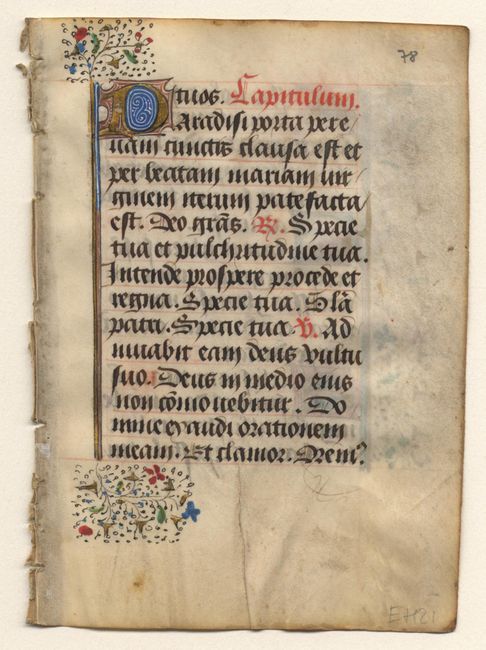 78
tuos. Capitulum.
Paradisi porta per e
uam cunctis clausa est et
per beatam mariam uir
ginem iterum patefacta
est. Deo grãs. R. Specie
tua et pulchritudine tua.
Intende prospere procede et
regna. Specie tua. Glã
patri. Specie tua V. Ad
iuuabit eam deus uultu
suo. Deus in medio eius
non cõmouebitur. Do
mine exaudi orationem
meam. Et clamor. Orem9
EH21